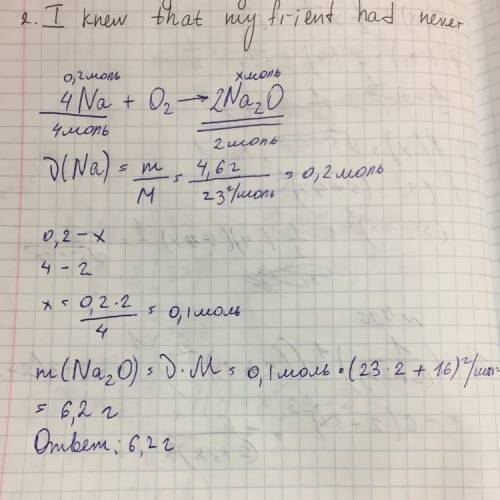 2. I knew that my frient had never
0,2 моль x моль
4Na + O₂ → 2Na₂O
4 моль 2 моль
ν(Na) = m/M = 4,6 г / 23 г/моль = 0,2 моль
0,2 – x
4 – 2
x = 0,2 · 2 / 4 = 0,1 моль
m(Na₂O) = ν · M = 0,1 моль · (23 · 2 + 16) г/моль
= 6,2 г
Ответ: 6,2 г